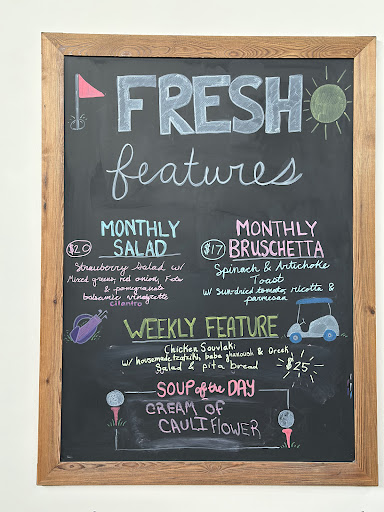 FRESH
features
MONTHLY
SALAD
$20
Strawberry Salad w/
Mixed greens, red onion, Feta
& pomegranate
balsamic vinaigrette
cilantro
MONTHLY
BRUSCHETTA
$17
Spinach & Artichoke
Toast
w/ sundried tomato, ricotta &
parmesan
WEEKLY FEATURE
Chicken Souvlaki
w/ housemade tzatziki, baba ghanoush & Greek
Salad & pita bread
$25
SOUP of the DAY
CREAM OF
CAULIFLOWER